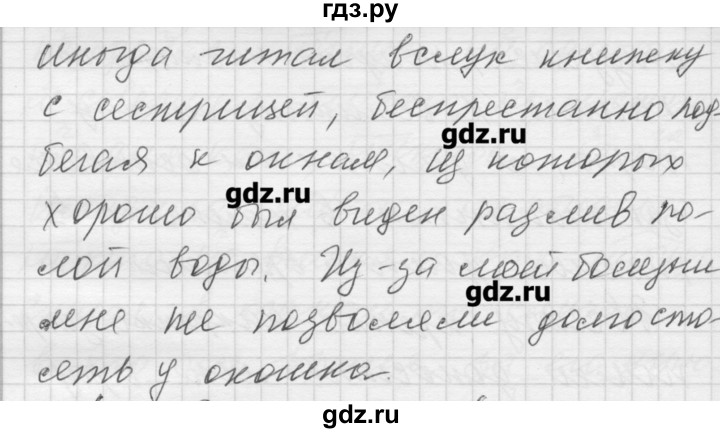 гдз.ру
иногда читал вслух книжку
с сестрицей, беспрестанно под-
gdz.ru
бегая к окнам, из которых
gdz.ru
хорошо был виден разлив по-
лой воды. Из-за моей болезни
gdz.ru
мне не позволяли долго сто-
ять у окошка.
gdz.ru